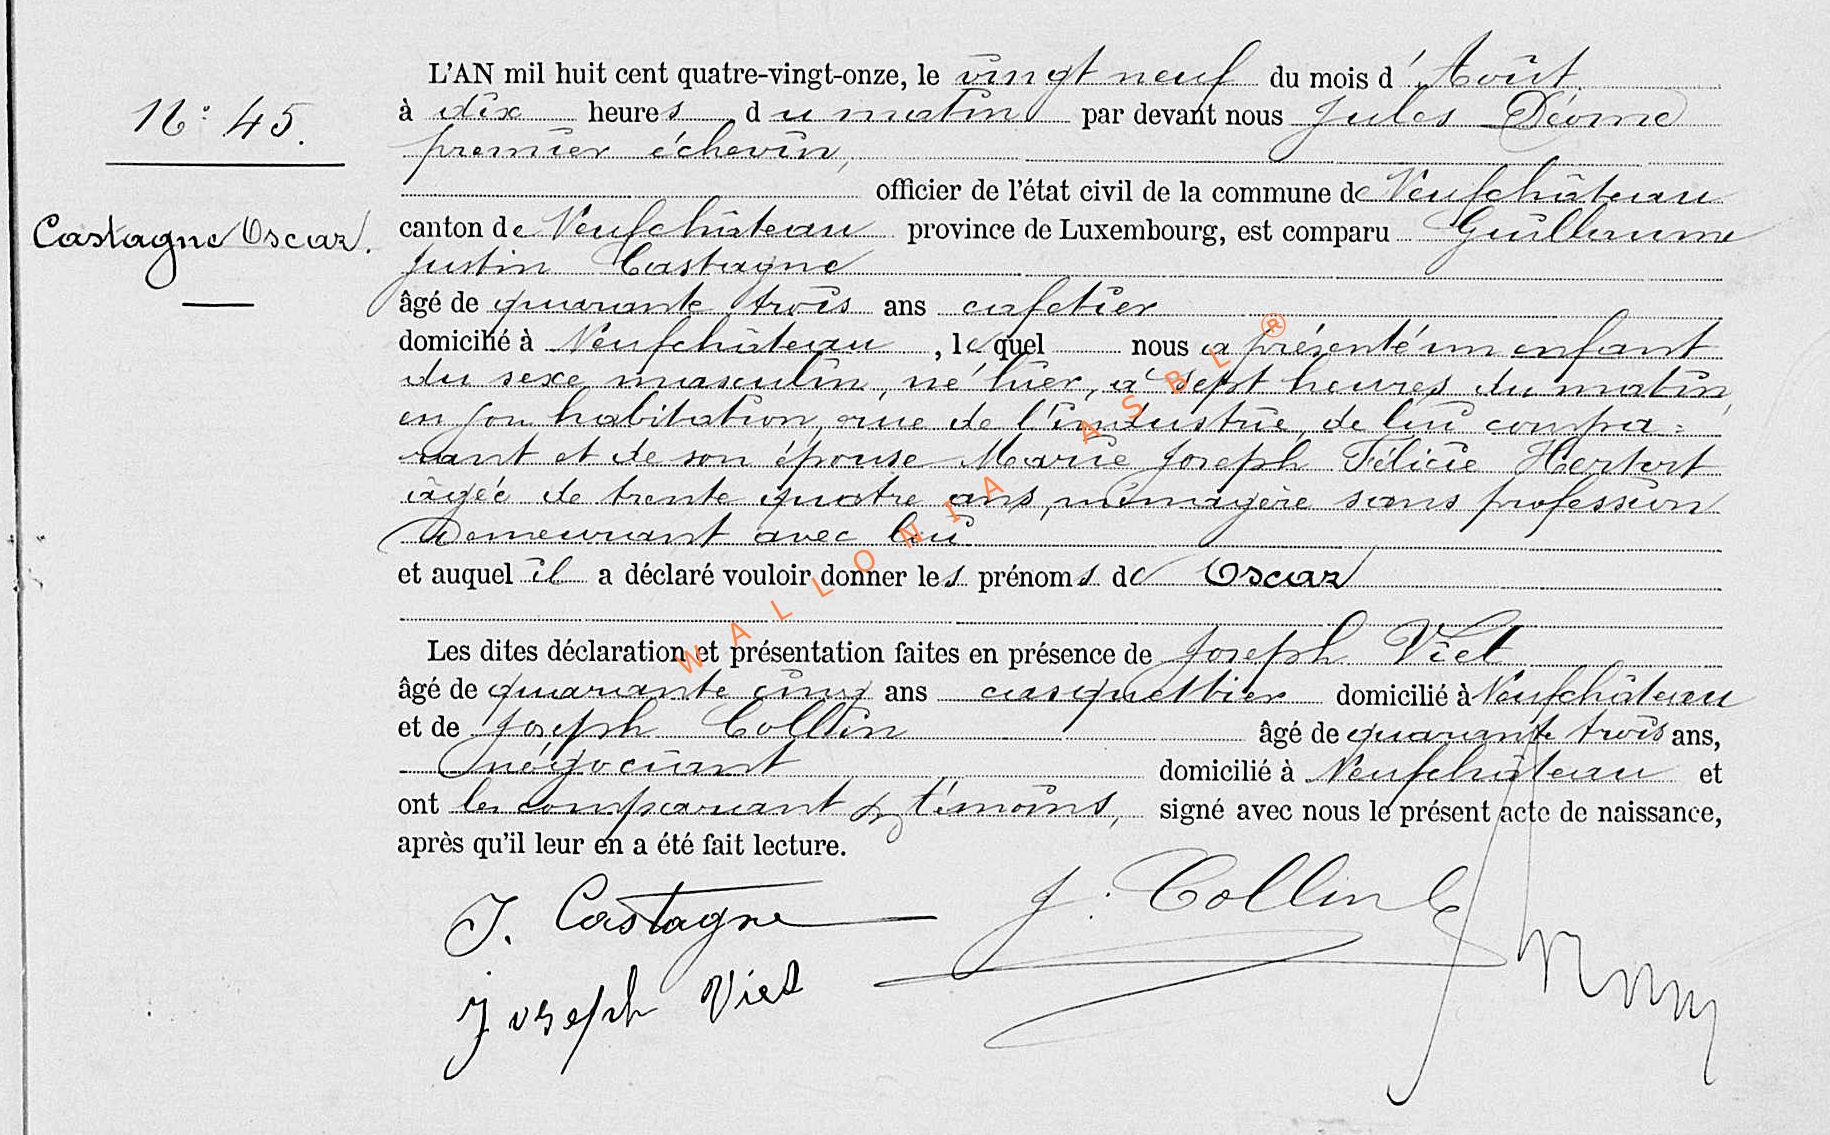 L'AN mil huit cent quatre-vingt-onze, le vingt neuf du mois d'Août
N° 45.
à dix heures du matin par devant nous Jules Déome
premier échevin,
officier de l'état civil de la commune de Neufchâteau
Castagne Oscar.
canton de Neufchâteau province de Luxembourg, est comparu Guillaume
Justin Castagne
âgé de quarante trois ans cafetier
domicilié à Neufchâteau, lequel nous a présenté un enfant
du sexe masculin, né hier, à sept heures du matin,
en son habitation, rue de l'industrie, de lui compa=
rant et de son épouse Marie Joseph Félicie
âgée de trente quatre ans, ménagère sans profession
Demeurant avec lui
et auquel il a déclaré vouloir donner les prénoms de Oscar
Les dites déclaration et présentation faites en présence de Joseph Viet
âgé de quarante cinq ans casquettier domicilié à Neufchâteau
et de Joseph Collin âgé de quarante trois ans,
négociant domicilié à Neufchâteau et
ont les comparant & témoins, signé avec nous le présent acte de naissance,
après qu'il leur en a été fait lecture.
J. Castagne J. Collin
Joseph Viet
WALLONIA ASBL ®